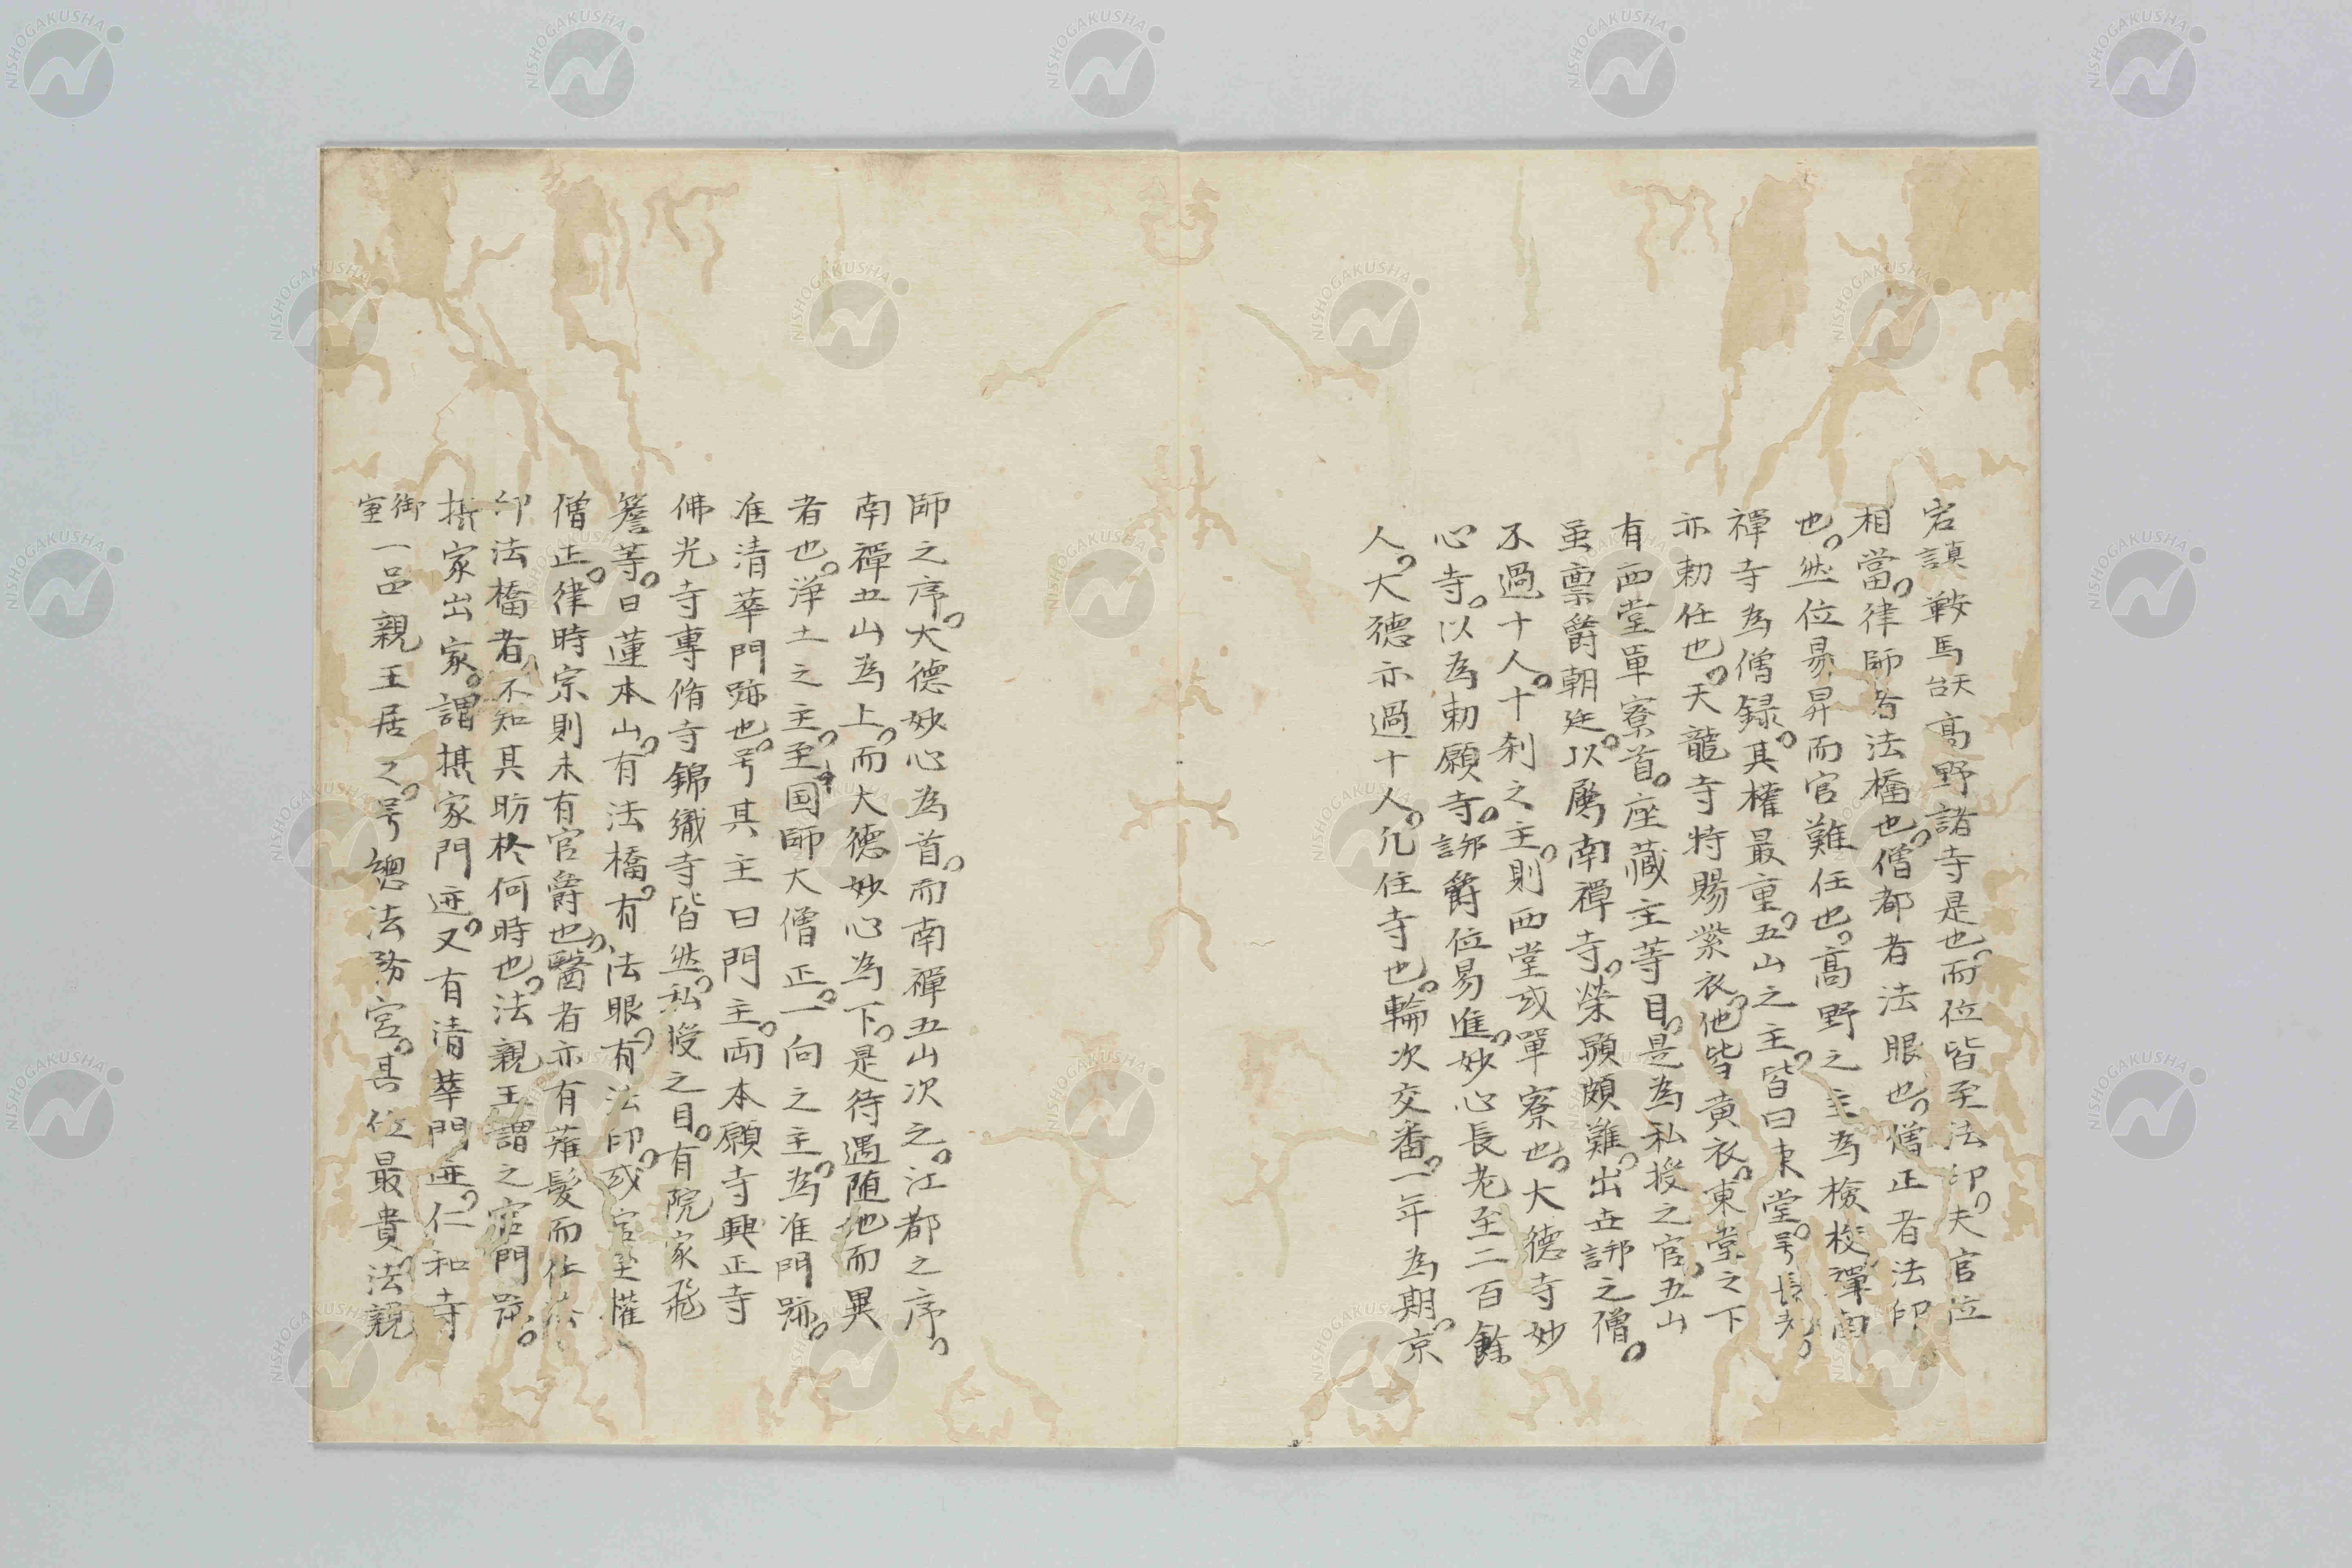 宕真言鞍馬天台高野諸寺是也。而位皆至法印。夫官位
相當。律師者法橋也。僧都者法眼也。僧正者法印
也。然位易昇而官難任也。高野之主為檢挍。禪南
禪寺為僧録。其權最重。五山之主。皆曰東堂。号長老。
亦勅任也。天龍寺特賜紫衣。他皆黄衣。東堂之下
有西堂單寮首。座藏主等目。是為私授之官。五山
虽禀爵朝廷。以属南禪寺。榮顕頗難。出世謗之僧。
不過十人。十刹之主。則西堂或單寮也。大德寺妙
心寺。以為勅願寺。謗爵位易進。妙心長老至二百餘
人。大德亦過十人。凢住寺也。輪次交番。一年為期。京
師之序。大德妙心為首。而南禪五山次之。江都之序。
南禪五山為上。而大德妙心為下。是待遇随地而異
者也。淨土之主。至国師大僧正。一向之主。為准門跡。
准清華門跡也。号其主曰門主。両本願寺興正寺
佛光寺專脩寺錦織寺皆然。私授之目。有院家飛
簷等。日蓮本山。有法橋。有法眼。有法印。或官至權
僧正。律時宗則未有官爵也。醫者亦有薙髪而仕法
印法橋者。不知其昉於何時也。法親王謂之宮門跡。
摂家出家。謂摂家門迹。又有清華門迹。仁和寺
御室一品親王居之。号總法務宮。其位最貴。法親
NISHOGAKUSHA